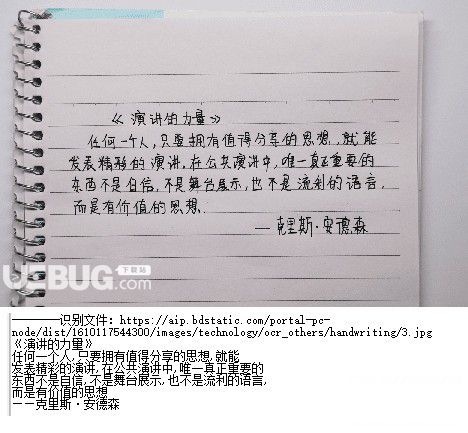 《演讲的力量》
任何一个人,只要拥有值得分享的思想,就能
发表精彩的演讲,在公共演讲中,唯一真正重要的
东西不是自信,不是舞台展示,也不是流利的语言,
而是有价值的思想.
—克里斯·安德森
UEBUG.com
下载站
————识别文件: https://aip.bdstatic.com/portal-pc-
node/dist/1610117544300/images/technology/ocr_others/handwriting/3.jpg
《演讲的力量》
任何一个人,只要拥有值得分享的思想,就能
发表精彩的演讲,在公共演讲中,唯一真正重要的
东西不是自信,不是舞台展示,也不是流利的语言,
而是有价值的思想
——克里斯·安德森